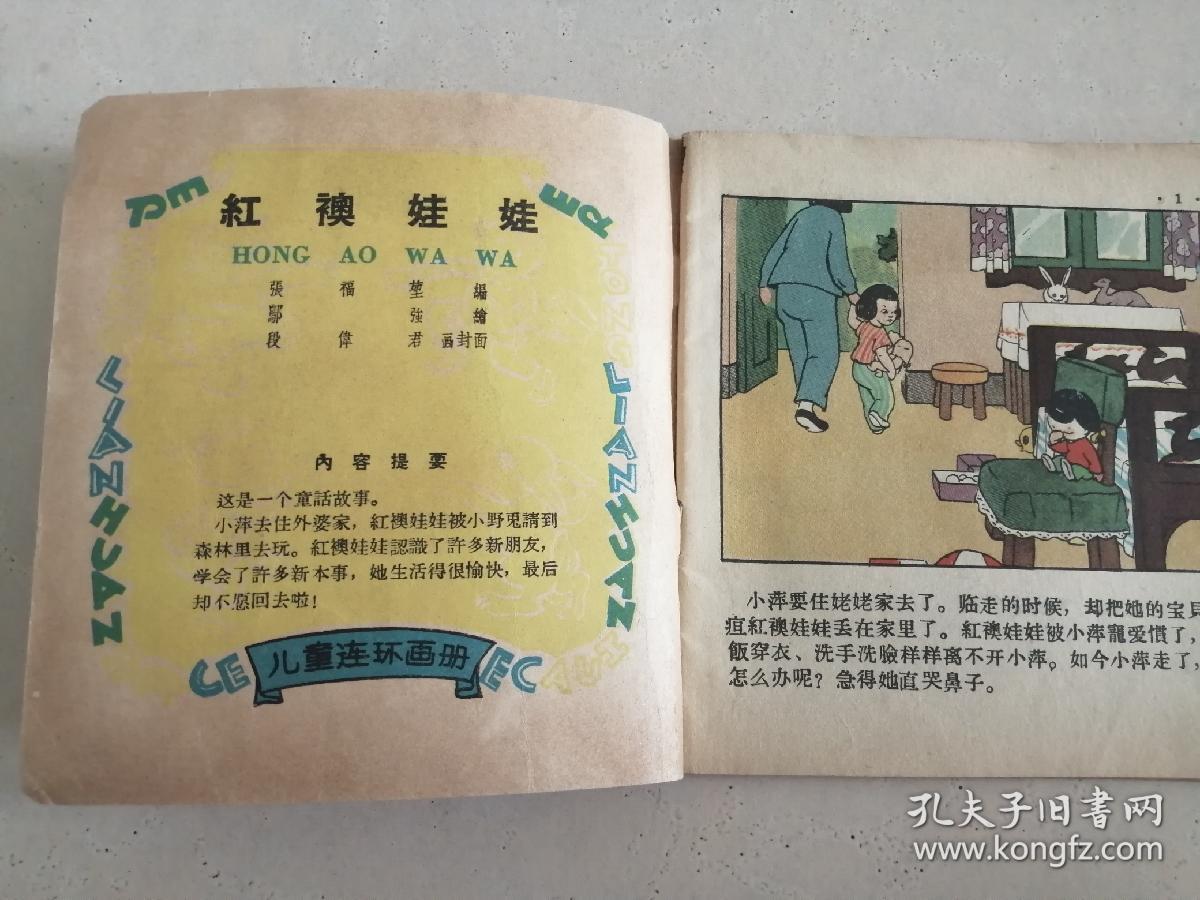 紅襖娃娃
HONG AO WA WA
張福堃編
鄢強繪
段偉君画封面
內容提要
这是一个童話故事。
小萍去住外婆家，紅襖娃娃被小野兎請到
森林里去玩。紅襖娃娃認識了許多新朋友，
学会了許多新本事，她生活得很愉快，最后
却不愿回去啦！
LIANHUAN
ER
LIANHUAN
CE
儿童连环画册
EC
·1·
小萍要住姥姥家去了。临走的时候，却把她的宝貝
疸紅襖娃娃丢在家里了。紅襖娃娃被小萍寵爱慣了，
飯穿衣、洗手洗臉样样离不开小萍。如今小萍走了，
怎么办呢？急得她直哭鼻子。
孔夫子旧书网
www.kongfz.com